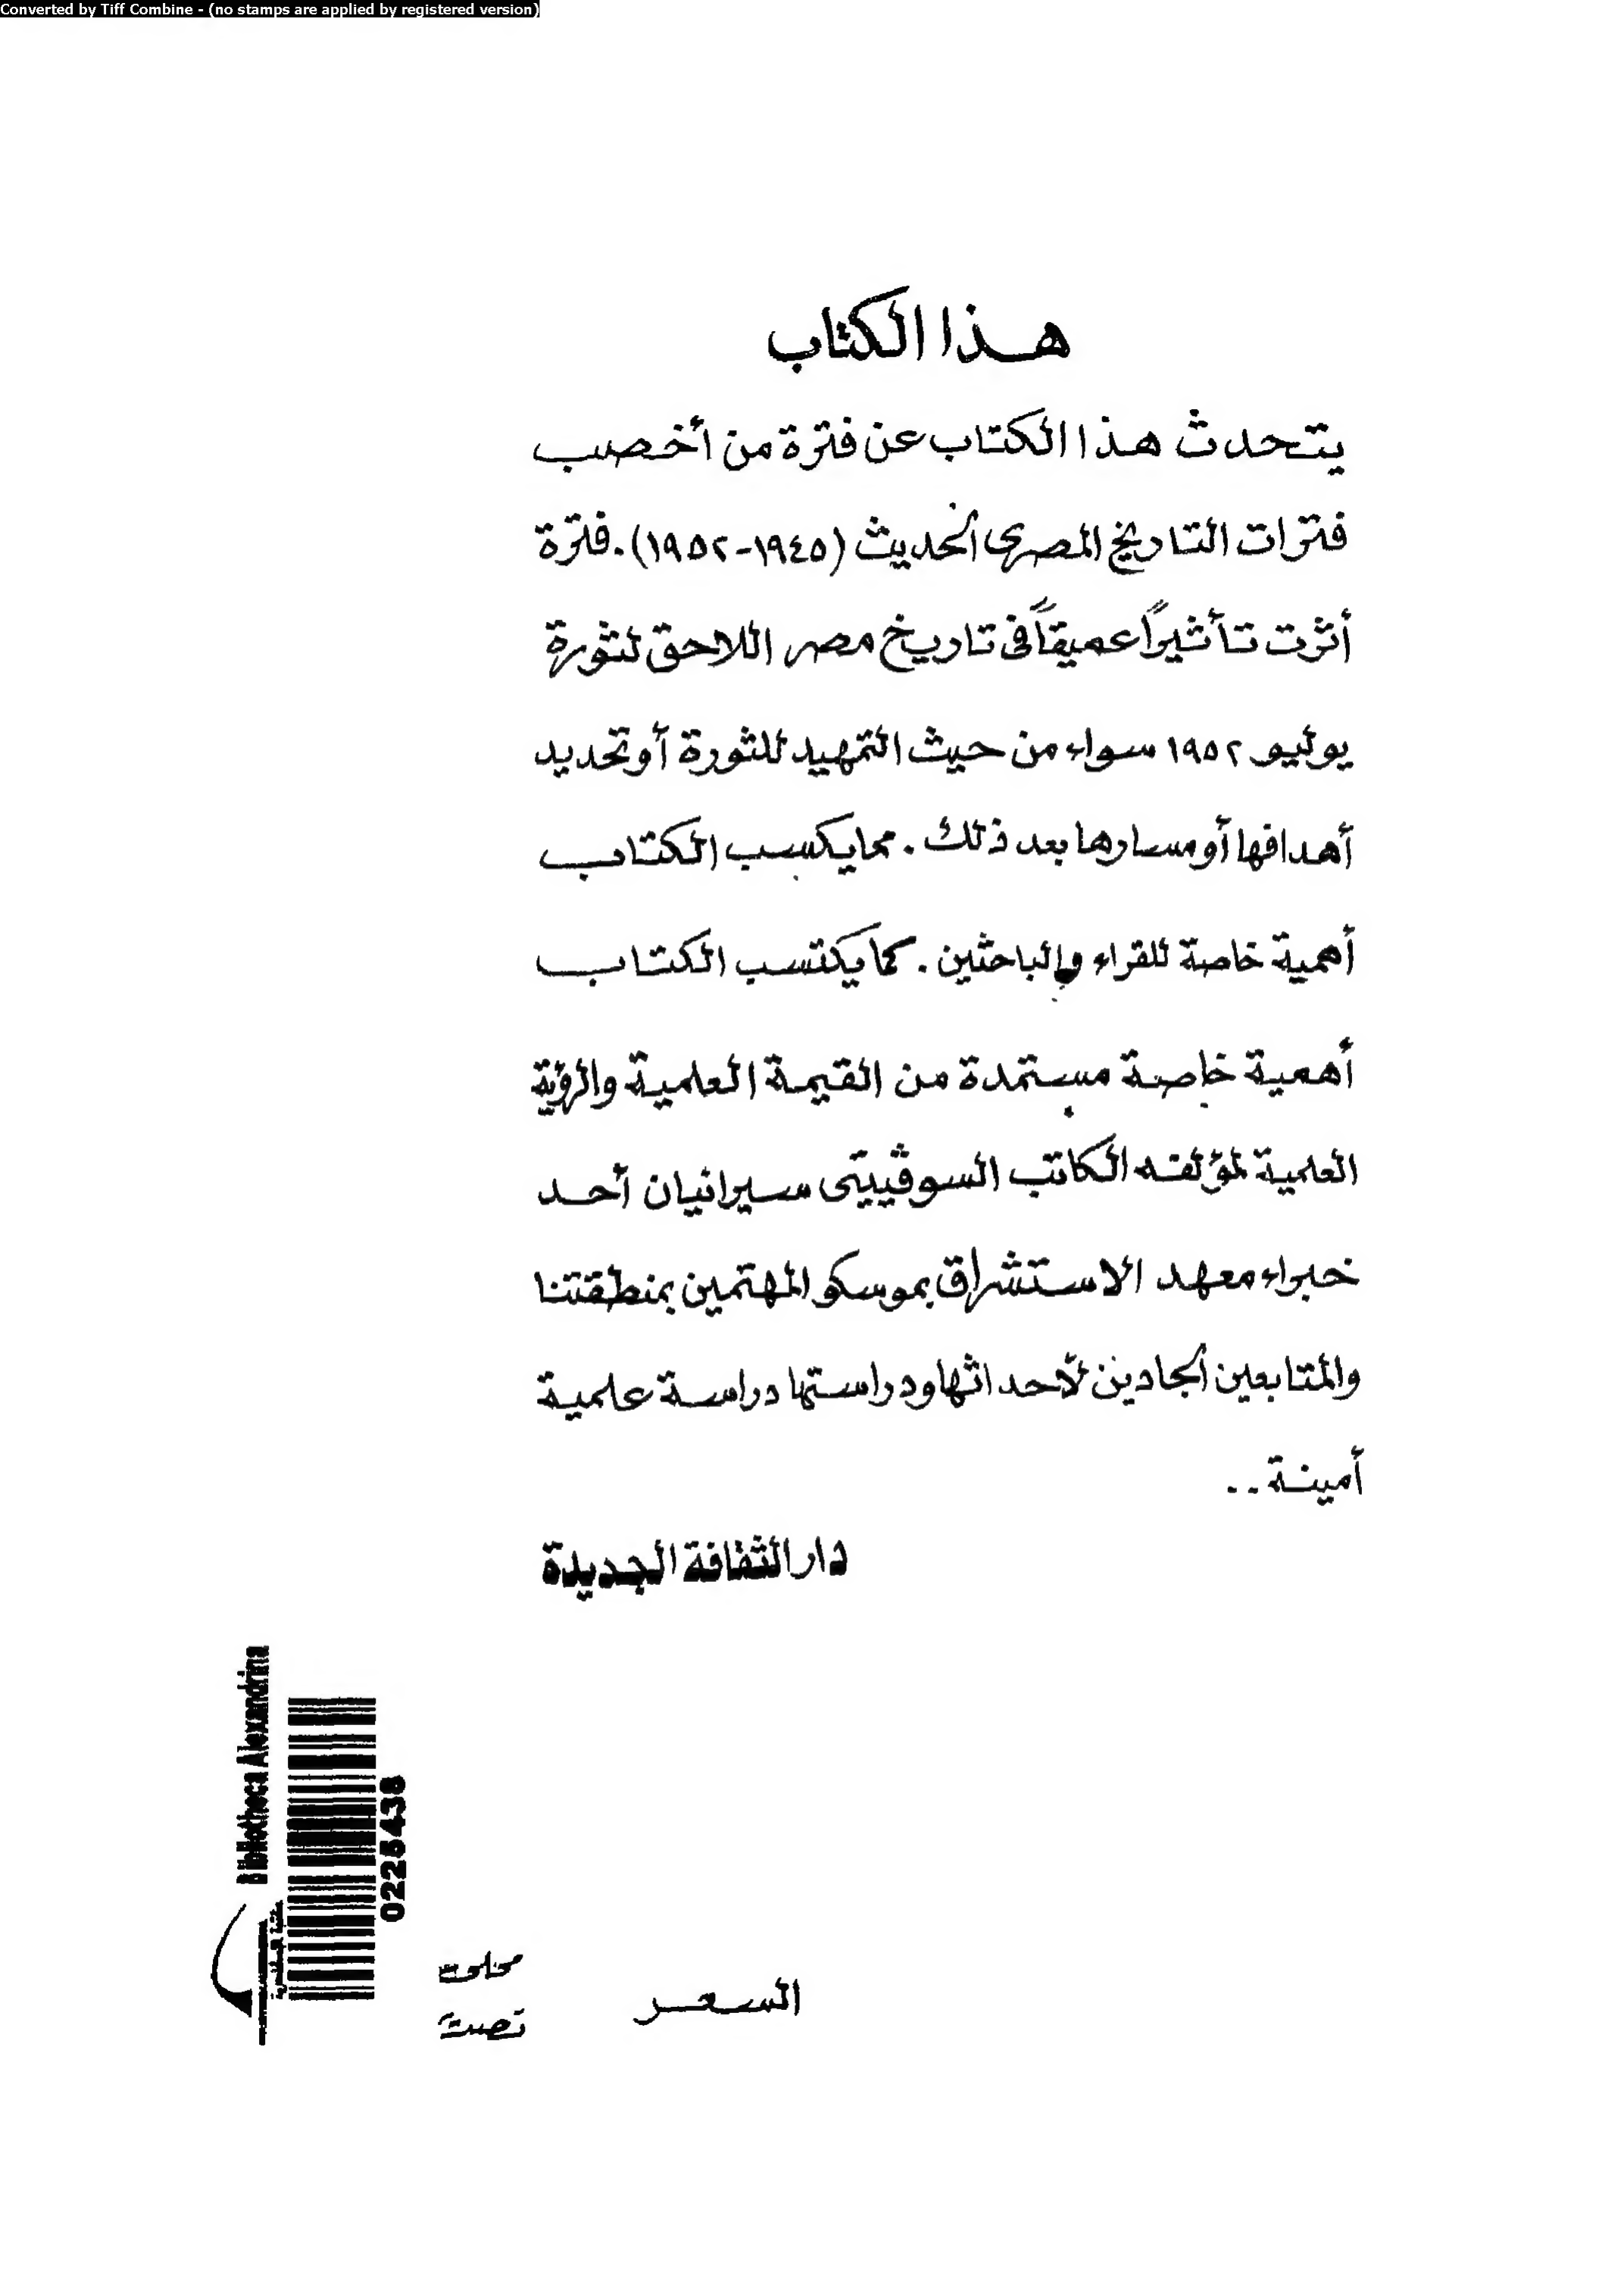 Converted by Tiff Combine - (no stamps are applied by registered version)
هذا الكتاب
يتحدث هذا الكتاب عن فترة من أخصب
فترات التاريخ المصرى الحديث (١٩٤٥-١٩٥٢). فترة
أثرت تأثيراً عميقاً فى تاريخ مصر اللاحق لثورة
يوليو ١٩٥٢ سواء من حيث التمهيد للثورة أو تحديد
أهدافها أو مسارها بعد ذلك . مما يكسب الكتاب
أهمية خاصة للقراء والباحثين . كما يكتسب الكتاب
أهمية خاصة مستمدة من القيمة العلمية والرؤية
العلمية لمؤلفه الكاتب السوڤييتى سيرانيان أحد
خبراء معهد الاستشراق بموسكو المهتمين بمنطقتنا
والمتابعين الجادين لأحداثها ودراستها دراسة علمية
أمينة ..
دار الثقافة الجديدة
Bibliotheca Alexandrina
0225438
السعر